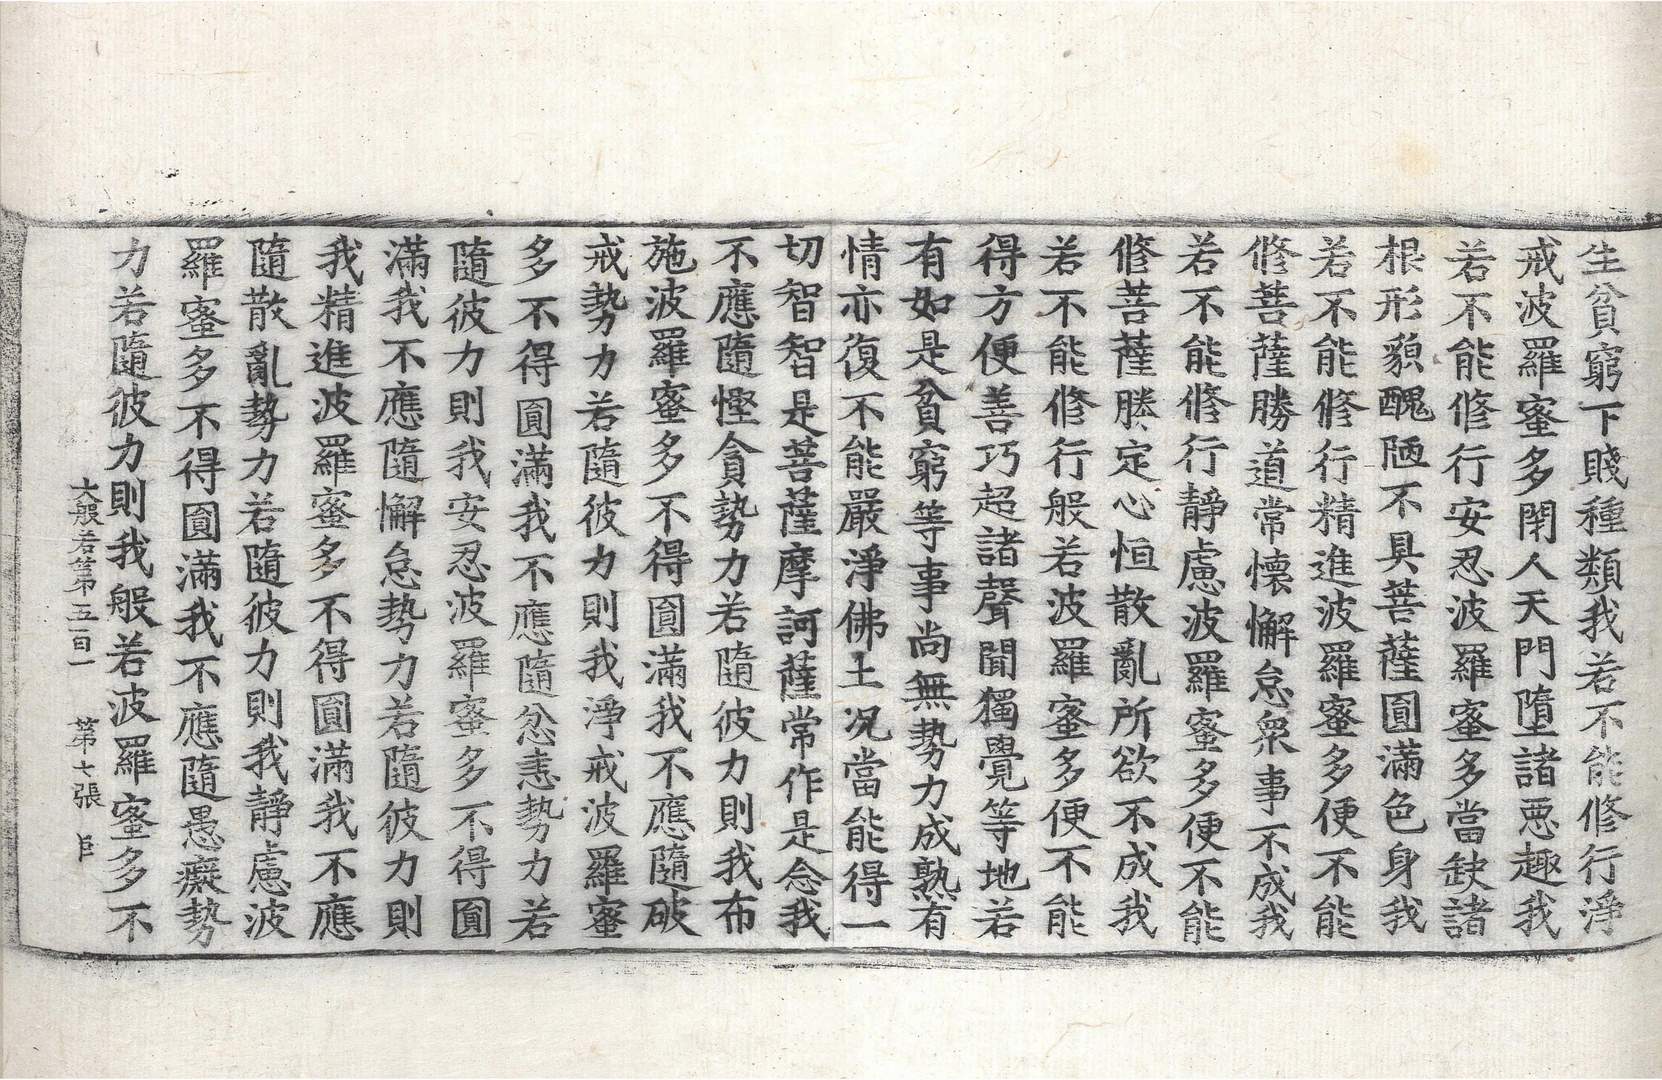 生貧窮下賤種類我若不能修行淨
戒波羅蜜多閉人天門墮諸惡趣我
若不能修行安忍波羅蜜多當缺諸
根形貌醜陋不具菩薩圓滿色身我
若不能修行精進波羅蜜多便不能
修菩薩勝道常懷懈怠衆事不成我
若不能修行靜慮波羅蜜多便不能
修菩薩勝定心恒散亂所欲不成我
若不能修行般若波羅蜜多便不能
得方便善巧超諸聲聞獨覺等地若
有如是貧窮等事尚無勢力成熟有
情亦復不能嚴淨佛土况當能得一
切智智是菩薩摩訶薩常作是念我
不應隨慳貪勢力若隨彼力則我布
施波羅蜜多不得圓滿我不應隨破
戒勢力若隨彼力則我淨戒波羅蜜
多不得圓滿我不應隨忿恚勢力若
隨彼力則我安忍波羅蜜多不得圓
滿我不應隨懈怠勢力若隨彼力則
我精進波羅蜜多不得圓滿我不應
隨散亂勢力若隨彼力則我靜慮波
羅蜜多不得圓滿我不應隨愚癡勢
力若隨彼力則我般若波羅蜜多不
大般若第五百一 第七張